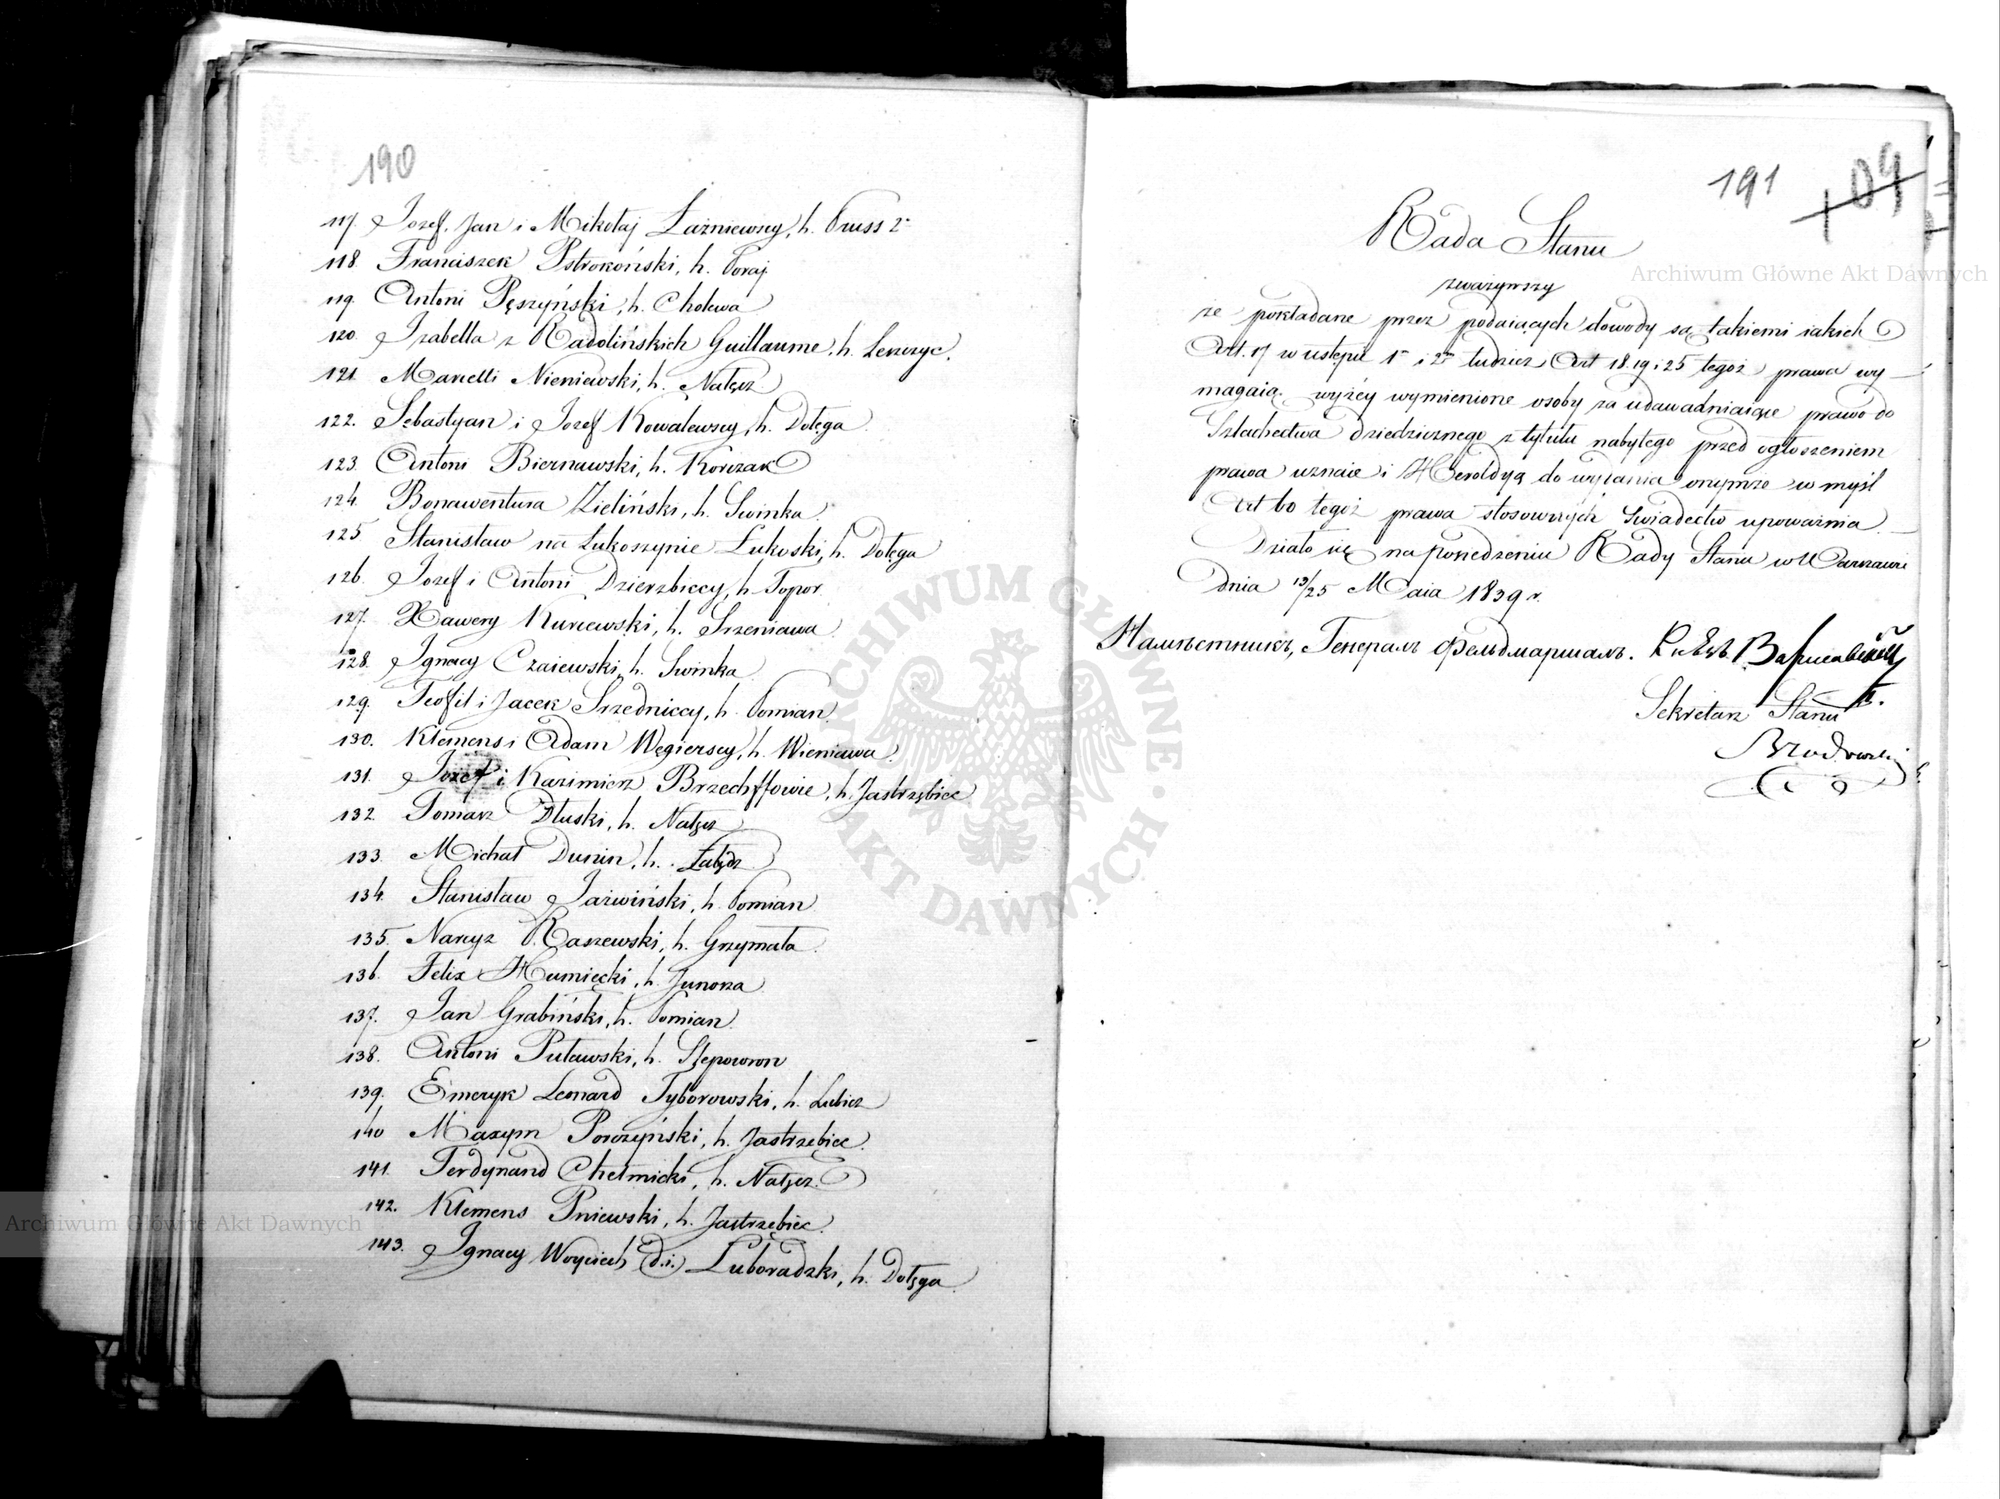 190
117. Jozef, Jan i Mikołaj Łaźniewscy, h. Pruss 2º
118. Franciszek Pstrokoński, h. Poraj
119. Antoni Pęszyński, h. Cholewa
120. Izabella z Radolińskich Guillaume, h. Leszczyc.
121. Marcelli Nieniewski, h. Nałęcz
122. Sebastyan i Jozef Kowalewscy, h. Dołęga
123. Antoni Biernawski, h. Korczak
124. Bonawentura Zieliński, h. Swinka
125. Stanisław na Łukoszynie Łukoski, h. Dołęga
126. Jozef i Antoni Dzierzbiccy, h. Topor
127. Xawery Kurcewski, h. Szreniawa
128. Ignacy Czaiewski, h. Swinka
129. Teofil i Jacek Srzedniccy, h. Pomian
130. Klemens i Adam Węgierscy, h. Wieniawa
131. Jozef i Kazimierz Brzechffowie, h. Jastrzębiec
132. Tomasz Dłuski, h. Nałęcz
133. Michał Dunin, h. Łabędz
134. Stanisław Jaźwiński, h. Pomian
135. Narcyz Raszewski, h. Grzymała
136. Felix Humięcki, h. Junosza
137. Jan Grabiński, h. Pomian
138. Antoni Puławski, h. Slepowron
139. Emeryk Leonard Tyborowski, h. Lubicz
140 Maxym Poroszyński, h. Jastrzębiec
141. Ferdynand Chełmicki, h. Nałęcz
142. Klemens Pniewski, h. Jastrzębiec
143. Ignacy Woyciech (d.i.) Luboradzki, h. Dołęga
191 109
Rada Stanu
zważywszy
że pokładane przez podaiących dowody są takiemi iakich
Art. 17 w ustępie 1m i 2m tudzież Art 18. 19 i 25 tegoż prawa wy-
magaią. wyżéy wymienione osoby za udowadniaiące prawo do
Szlachectwa dziedzicznego z tytułu nabytego przed ogłoszeniem
prawa uznaie i Heroldyą do wydania onymże w myśl
Art 60 tegoż prawa stosownych Swiadectw upoważnia.
Działo się na posiedzeniu Rady Stanu w Warszawie
dnia 13/25 Maia 1839 r.
Намѣстникъ, Генералъ Фельдмаршалъ. Князь Варшавскій
Sekretarz Stanu
Brzozowski
Archiwum Główne Akt Dawnych
Archiwum Główne Akt Dawnych
ARCHIWUM GŁÓWNE AKT DAWNYCH